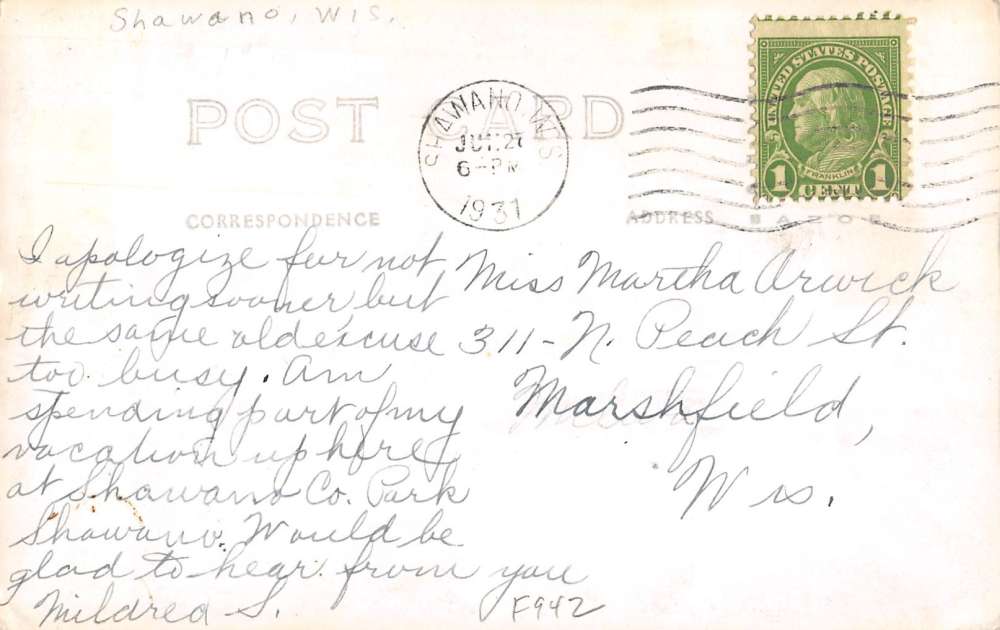 Shawano, Wis.
POST CARD
SHAWANO, WIS
6-PM
1931
UNITED STATES POSTAGE
FRANKLIN
1 CENT 1
CORRESPONDENCE
ADDRESS
I apologize for not
writing sooner but
the same old excuse
too busy. Am
spending part of my
vacation up here
at Shawano Co. Park
Shawano. Would be
glad to hear from you
Mildred S.
Miss Martha Orwick
311-N. Peach St.
Marshfield,
Wis.
F942